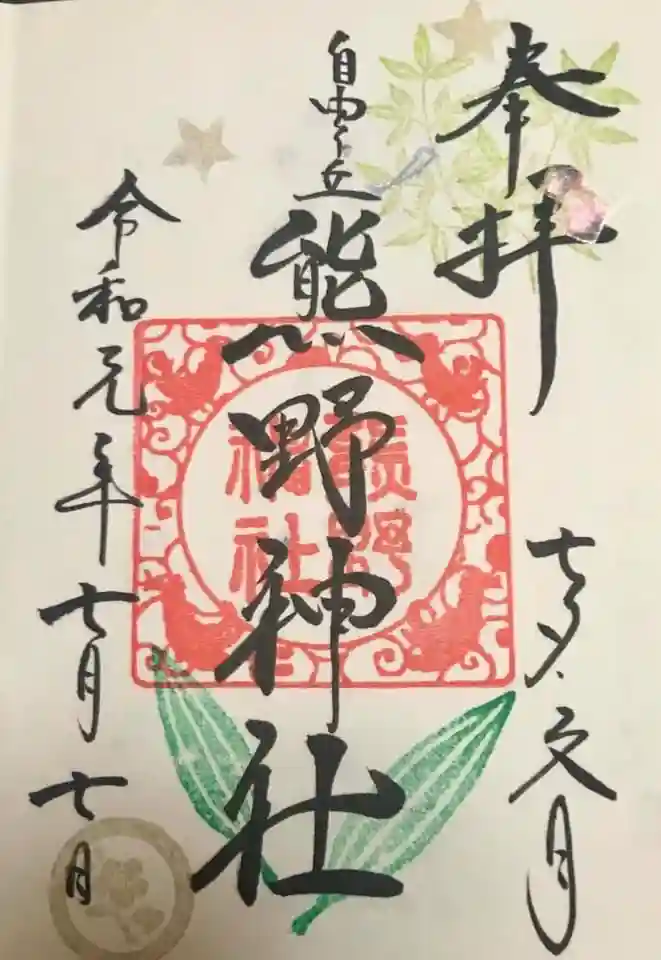 奉拝
七夕・文月
自由ヶ丘
熊野神社
熊野
神社
令和元年七月七日